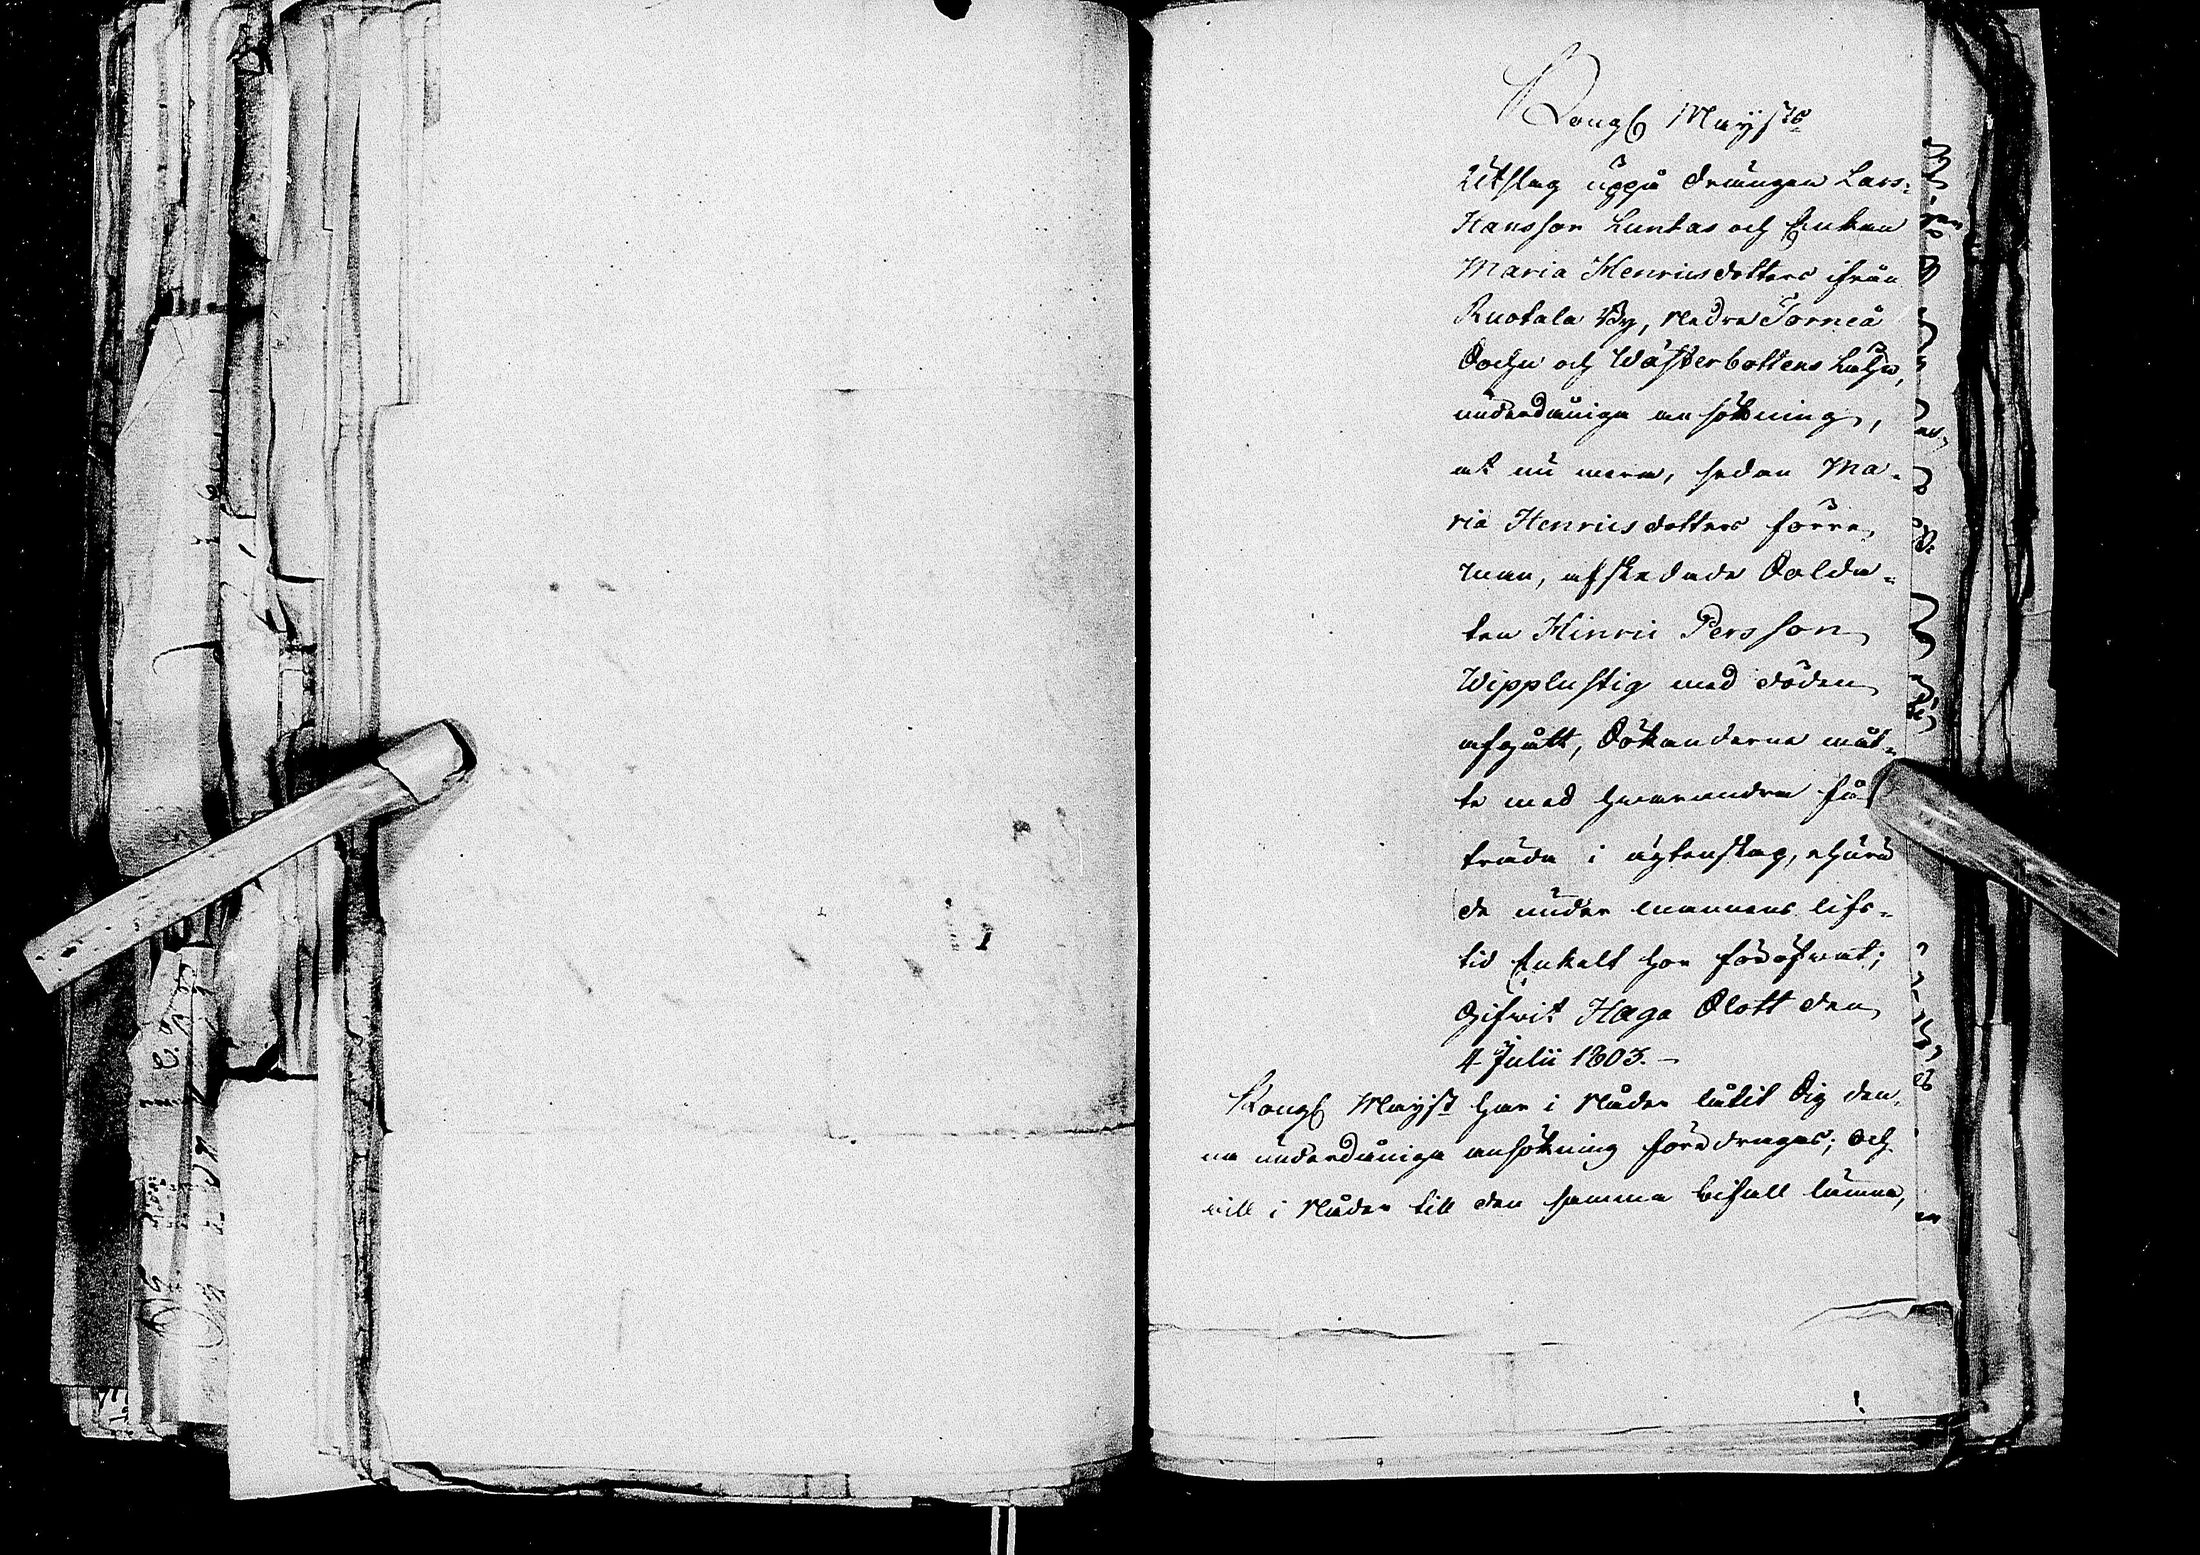 Kongl Mayst:s
Utslag uppå drängen Lars
Hansson Luntas och Enkan
Maria Henricsdotters ifrån
Ruotala By, Nedre Torneå
Sochn och Wästerbottens Lähn,
underdåniga ansökning,
at nu mera, sedan Ma-
ria Henricsdotters förra
man, afskedade Solda-
ten Hinric Persson
Wipplustig med döden
afgått, Sökanderne måt-
te med hvarandra få
träda i ägtenskap, ehuru
de under mannens lifs-
tid Enkelt hor föröfwat;
Gifwit Haga Slott den
4 Julii 1803.-
Kongl Mayst har i Nåder låtit Sig den-
na underdåniga ansökning föredragas; och
vill i Nåder till den samma bifall lämna,